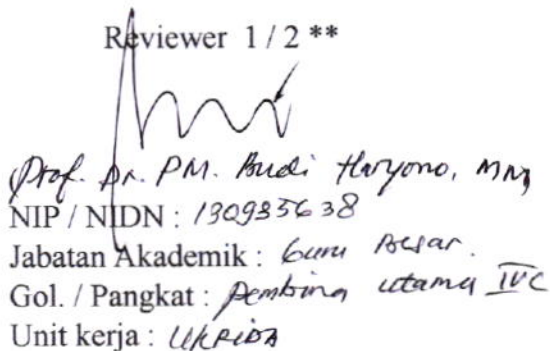 Reviewer 1 / 2 **
Prof. Dr. PM. Budi Haryono, MM
NIP / NIDN : 130935638
Jabatan Akademik : Guru Besar.
Gol. / Pangkat : Pembina utama IVC
Unit kerja : UKRIDA